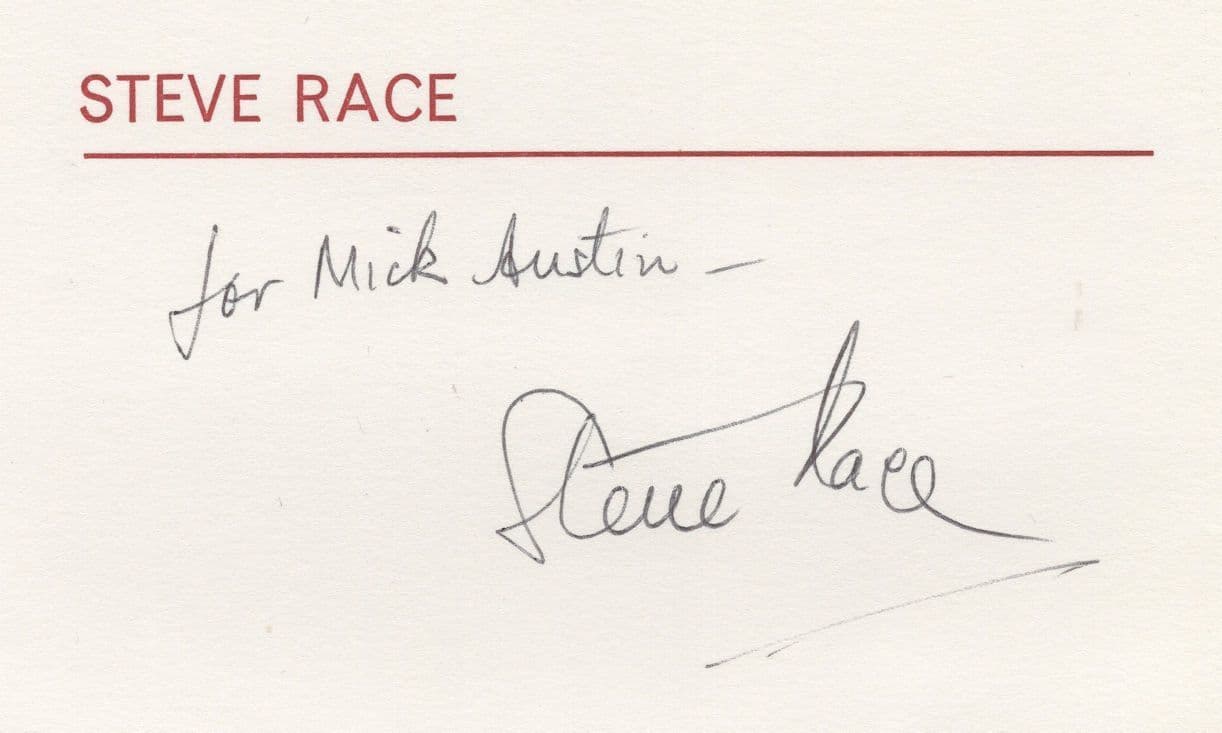 STEVE RACE
for Mick Austin –
Steve Race